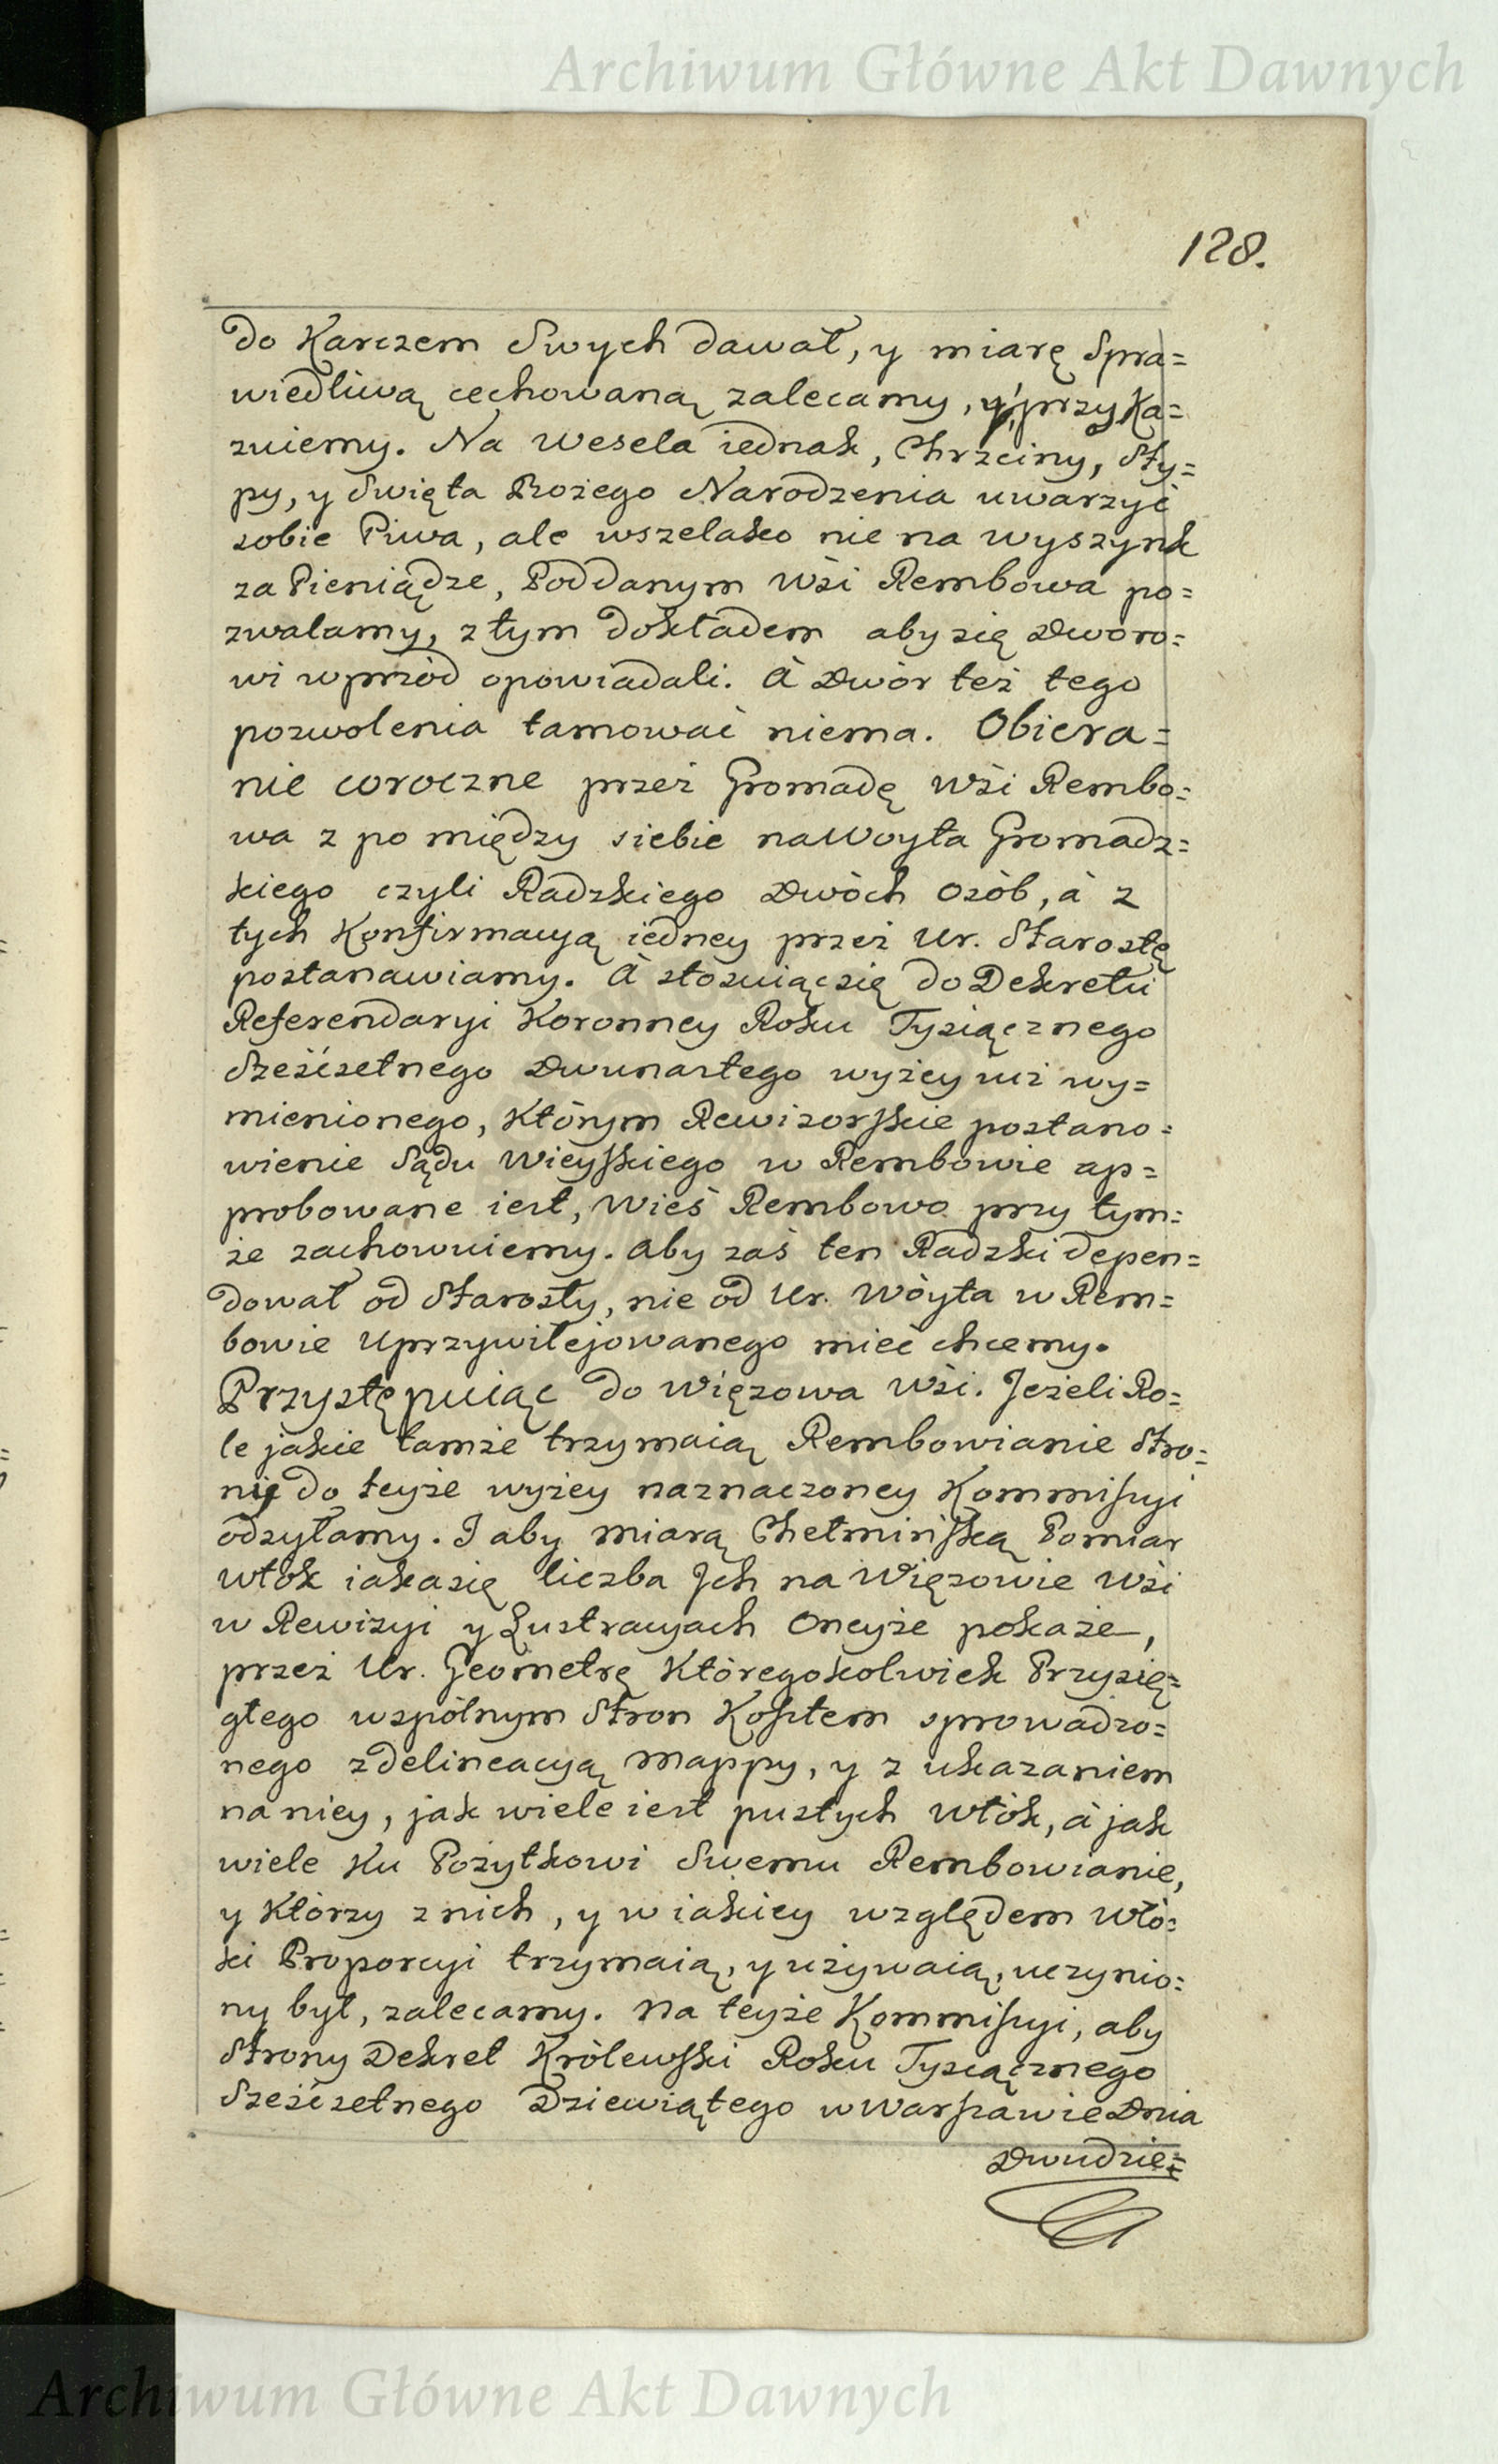 Archiwum Główne Akt Dawnych
128.
do Karczem Swych dawał, y miarę Spra=
wiedliwą cechowaną zalecamy, y przyka=
zuiemy. Na Wesela iednak, Chrzciny, Sty=
py, y Swięta Bożego Narodzenia uwarzyć
sobie Piwa, ale wszelako nie na wyszynk
za Pieniądze, Poddanym Wsi Rembowa po=
zwalamy, z tym dokładem aby się Dworo=
wi wprzód opowiadali. à Dwór też tego
pozwolenia tamować niema. Obiera=
nie coroczne przez Gromadę Wsi Rembo=
wa z po między siebie na Woyta Gromadz=
kiego czyli Radzkiego Dwóch Osób, à z
tych Konfirmacyą iedney przez Ur. Starostę
postanawiamy. à stosuiąc się do Dekretu
Referendaryi Koronney Roku Tysiącznego
Sześćsetnego Dwunastego wyżey już wy=
mienionego, którym Rewizorskie postano=
wienie Sądu Wieyskiego w Rembowie ap=
probowane iest, Wieś Rembowo przy tym=
że zachowuiemy. Aby zaś ten Radzki depen=
dował od Starosty, nie od Ur. Wóyta w Rem=
bowie Uprzywilejowanego mieć chcemy.
Przystępuiąc do Więzowa Wsi. Jeżeli Ro=
le jakie tamże trzymaią Rembowianie Stro=
nie do teyże wyżey naznaczoney Kommissyi
odzyłamy. I aby miarą Chełmińską Pomiar
Włók iaka się liczba Jch na Więzowie Wsi
w Rewizyi y Lustracyach Oneyże pokaże,
przez Ur. Geometrę któregokolwiek Przysię=
głego wspólnym Stron Kosztem sprowadzo=
nego z delineacyą Mappy, y z ukazaniem
na niey, jak wiele iest pustych Włók, à jak
wiele ku Pożytkowi Swemu Rembowianie,
y którzy z nich, y w iakiey względem Włó=
ki Proporcyi trzymaią, y używaią, uczynio=
ny był, zalecamy. Na teyże Kommissyi, aby
Strony Dekret Królewski Roku Tysiącznego
Sześćsetnego Dziewiątego w Warszawie Dnia
Dwudzie=
Archiwum Główne Akt Dawnych